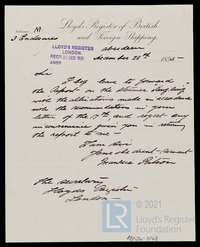 M
3 Enclosures
Lloyd's Register of British
and Foreign Shipping.
Aberdeen
December 28th 1895
LLOYD'S REGISTER
LONDON.
RECD 30 DEC 1895
ANSD
Sir
I beg leave to forward
the Report on the Steamer
with the alterations made in accordance
with the communication in your
letter of the 17th and regret any
inconvenience given you in returning
the report to me
I am Sir
Your obedient servant
The Secretary
Lloyds Register
London
© 2021
Lloyd's Register
Foundation